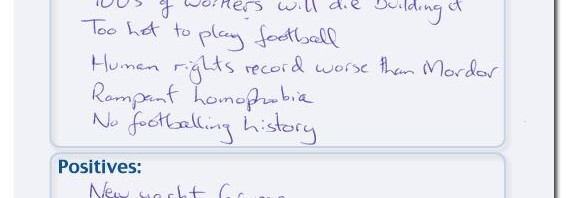 100s of workers will die building it
Too hot to play football
Human rights record worse than Mordor
Rampant homophobia
No footballing history
Positives:
New yacht